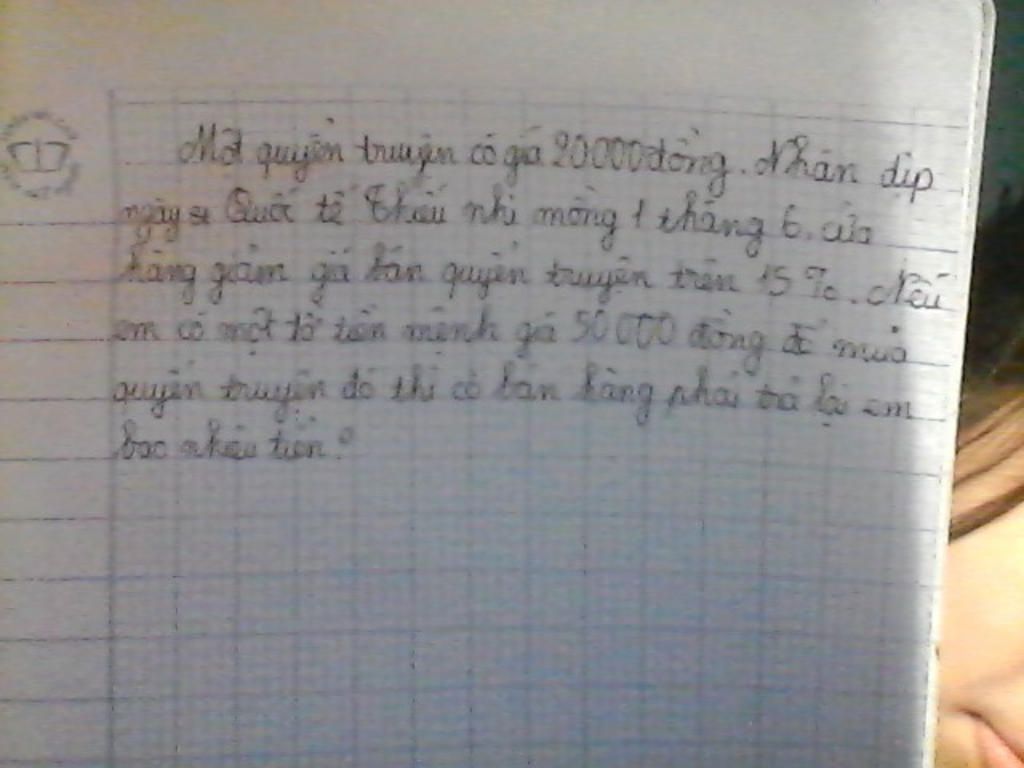 Một quyển truyện có giá 20000 đồng. Nhân dịp
ngày Quốc tế Thiếu nhi mồng 1 tháng 6, cửa
hàng giảm giá bán quyển truyện trên 15%. Nếu
em có một tờ tiền mệnh giá 50 000 đồng để mua
quyển truyện đó thì cô bán hàng phải trả lại em
bao nhiêu tiền?